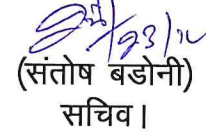 23/12
(संतोष बडोनी)
सचिव।